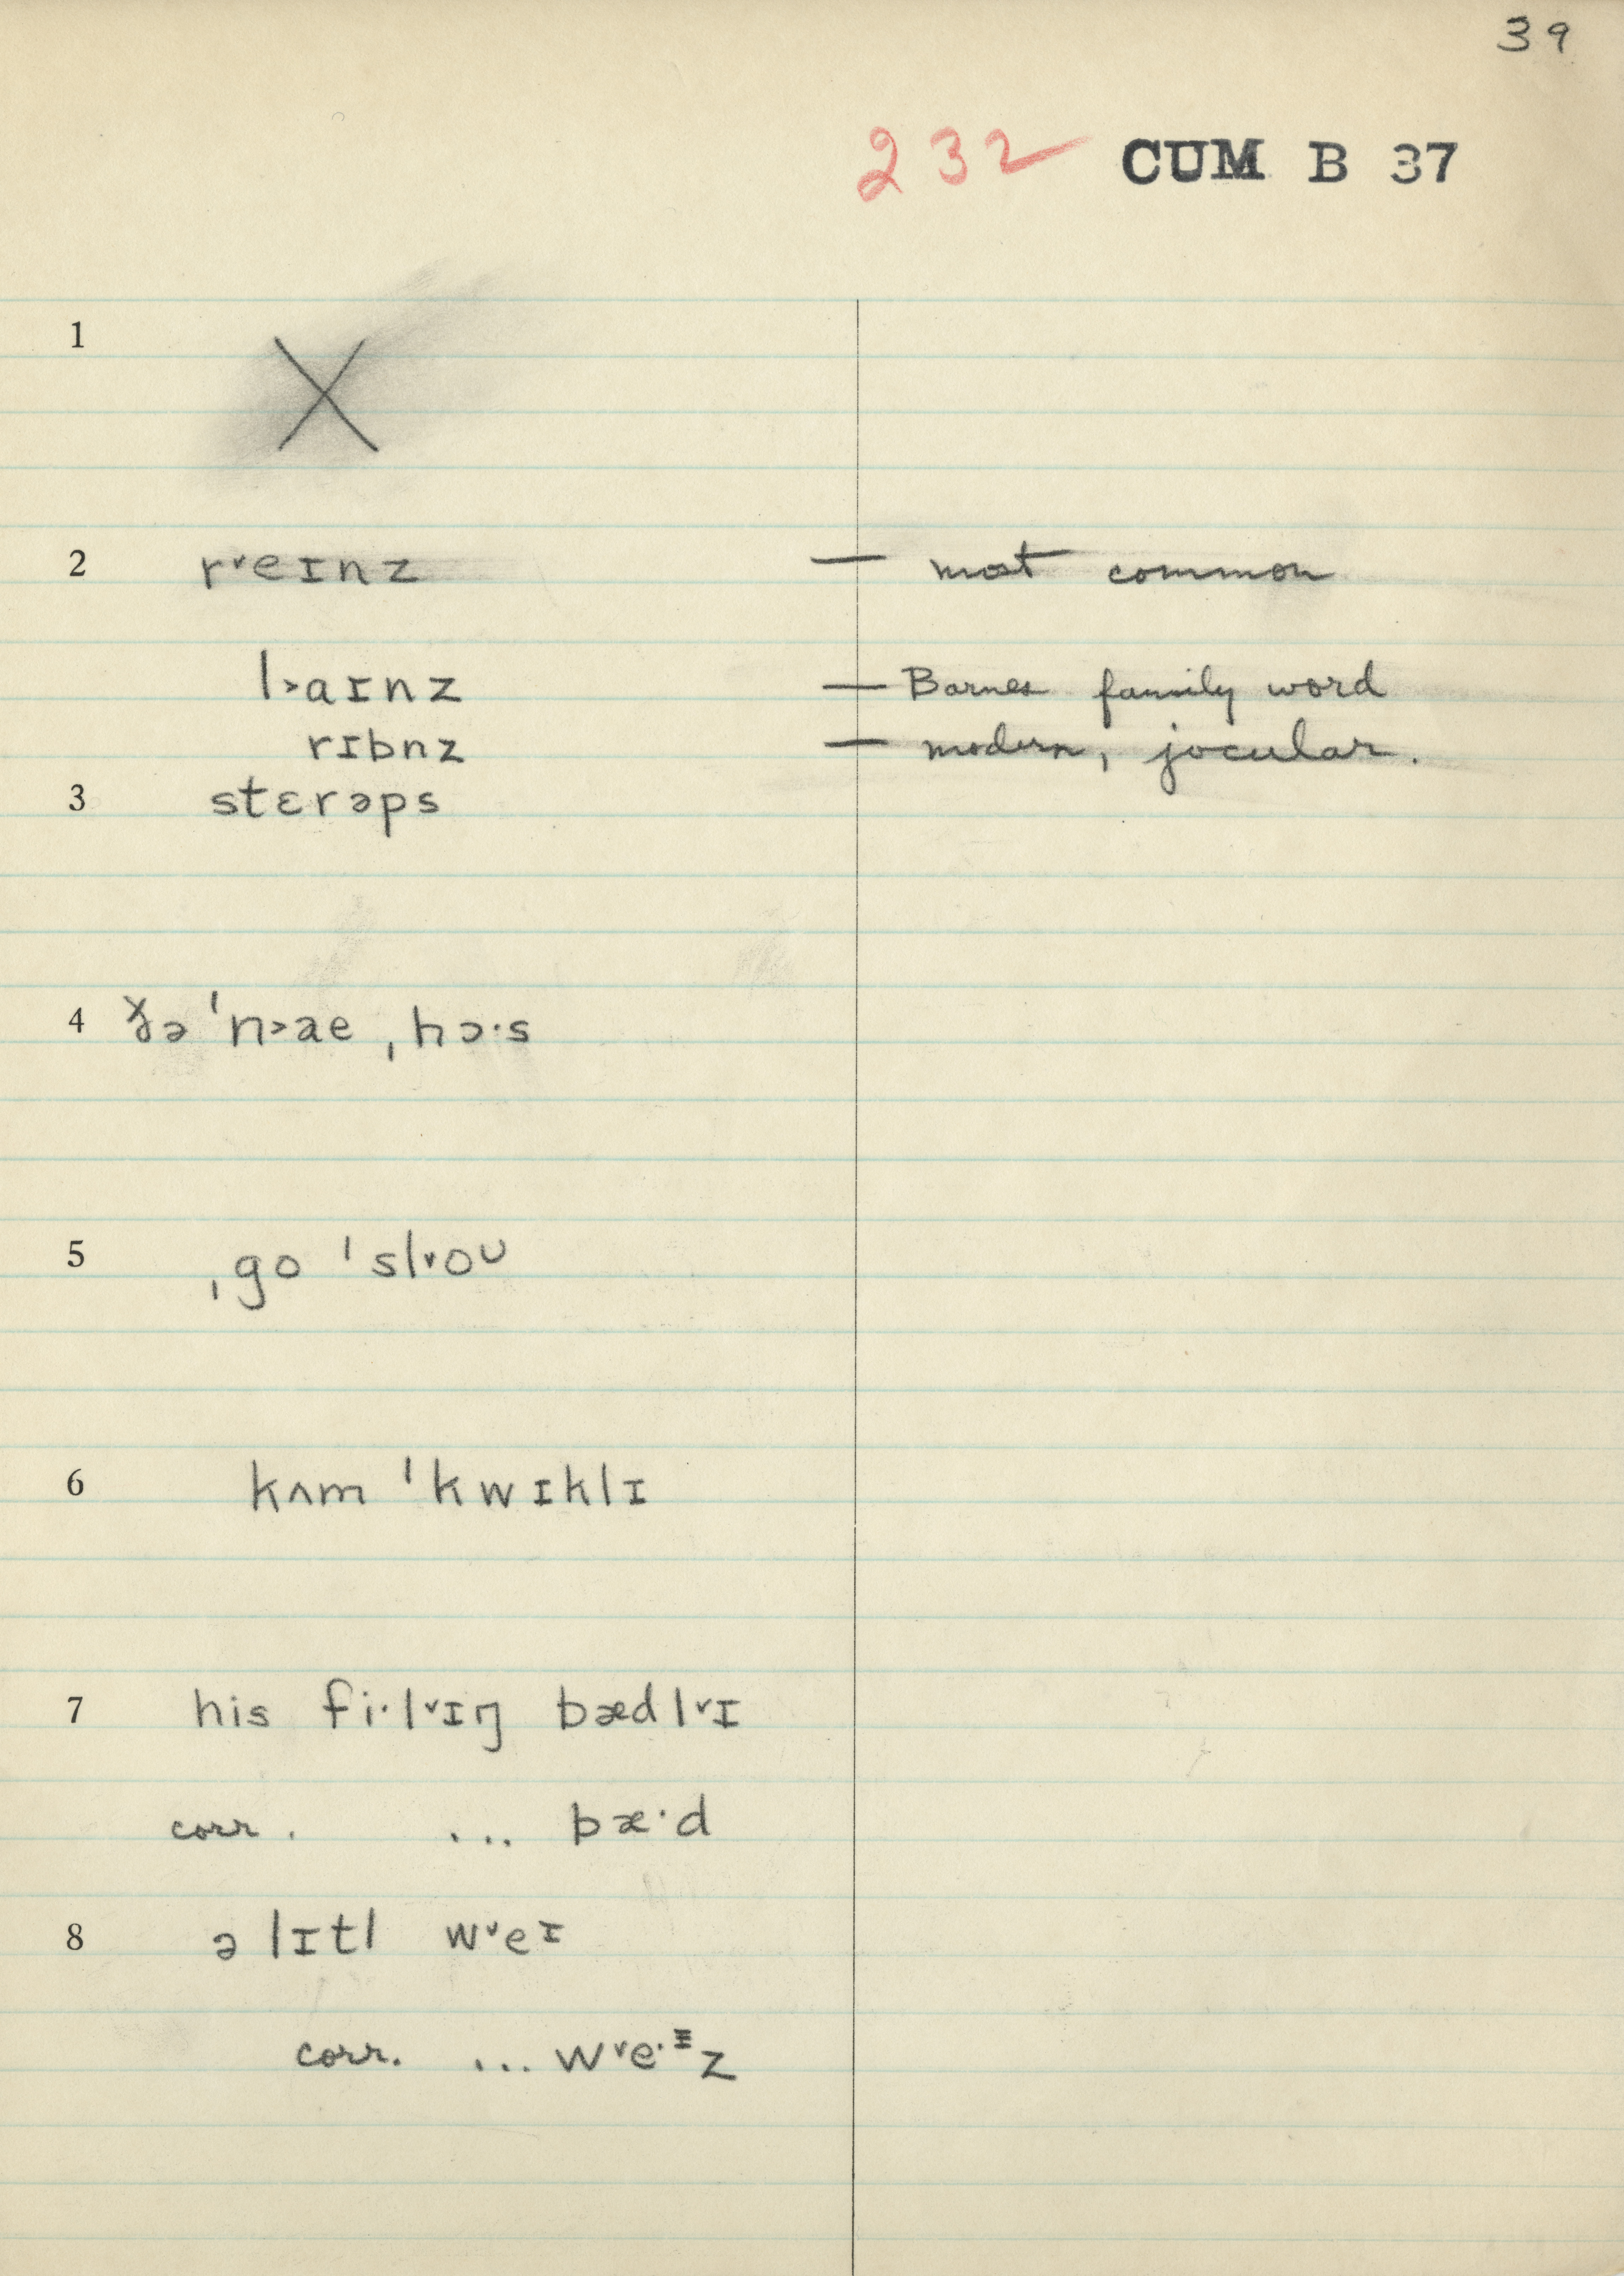 39
232 CUM B 37
1 X
2 r˅eɪnz — most common
l˃aɪnz — Barnes family word
rɪbnz — modern, jocular.
3 stɛrəps
4 ɣ̌ə ˈn˃ae ˌhɔ·s
5 ˌgo ˈsl˅oᴜ
6 kʌm ˈkwɪklɪ
7 his fi·l˅ɪŋ bædl˅ɪ
corr. ... bæ·d
8 ə lɪtl w˅eɪ
corr. ... w˅e·ᶦz